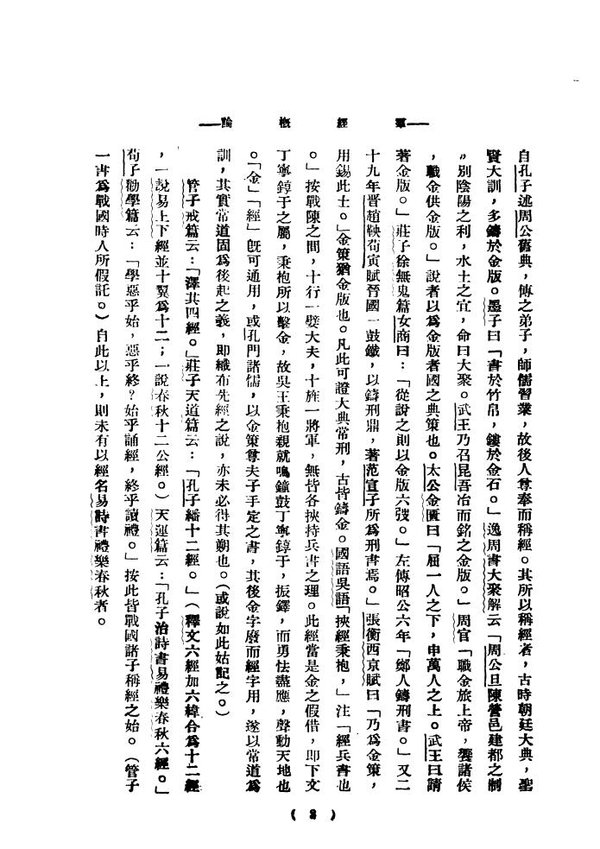 羣經概論
自孔子述周公舊典，傳之弟子，師儒習業，故後人尊奉而稱經。其所以稱經者，古時朝廷大典，聖
賢大訓，多鑄於金版。墨子曰「書於竹帛，鏤於金石。」逸周書大聚解云「周公旦陳營邑建都之制
，別陰陽之利，水土之宜，命曰大聚。武王乃召昆吾冶而銘之金版。」周官「職金旅上帝，饗諸侯
，職金供金版。」說者以為金版者國之典策也。太公金匱曰「屈一人之下，申萬人之上。武王曰請
著金版。」莊子徐無鬼篇女商曰：「從說之則以金版六弢。」左傳昭公六年「鄭人鑄刑書。」又二
十九年晉趙鞅荀寅賦晉國一鼓鐵，以鑄刑鼎，著范宣子所為刑書焉。」張衡西京賦曰「乃為金策，
用錫此土。」金策猶金版也。凡此可證大典常刑，古皆鑄金。國語吳語「挾經秉枹，」注「經兵書也
。」按戰陳之間，十行一嬖大夫，十旌一將軍，無皆各挾持兵書之理。此經當是金之假借，即下文
丁寧錞于之屬，秉枹所以擊金，故吳王秉枹親就鳴鐘鼓丁寧錞于，振鐸，而勇怯盡應，聲動天地也
。「金」「經」既可通用，或孔門諸儒，以金策尊夫子手定之書，其後金字廢而經字用，遂以常道為
訓，其實常道固為後起之義，即織布先經之說，亦未必得其朔也。（或說如此姑記之。）
管子戒篇云：「澤其四經。」莊子天道篇云：「孔子繙十二經。」（釋文六經加六緯合為十二經
，一說易上下經並十翼為十二；一說春秋十二公經。）天運篇云：「孔子治詩書易禮樂春秋六經。」
荀子勸學篇云：「學惡乎始，惡乎終？始乎誦經，終乎讀禮。」按此皆戰國諸子稱經之始。（管子
一書為戰國時人所假託。）自此以上，則未有以經名易詩書禮樂春秋者。
( 2 )